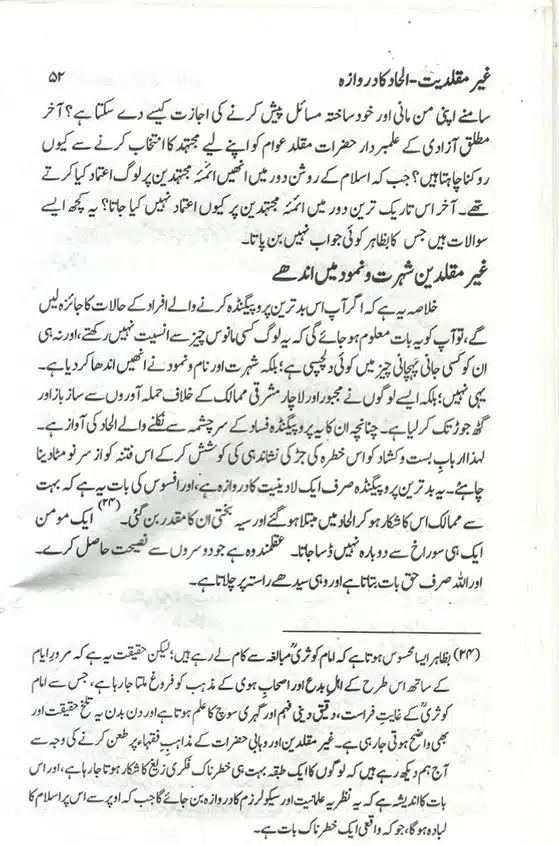 غیر مقلدیت-الحاد کا دروازہ ۵۲
سامنے اپنی من مانی اور خود ساختہ مسائل پیش کرنے کی اجازت کیسے دے سکتا ہے؟ آخر
مطلق آزادی کے علمبردار حضرات مقلد عوام کو اپنے لیے مجتہد کا انتخاب کرنے سے کیوں
روکنا چاہتا ہیں؟ جب کہ اسلام کے روشن دور میں انھیں ائمۂ مجتہدین پر لوگ اعتماد کیا کرتے
تھے۔ آخر اس تاریک ترین دور میں ائمۂ مجتہدین پر کیوں اعتماد نہیں کیا جاتا؟ یہ کچھ ایسے
سوالات ہیں جس کا بظاہر کوئی جواب نہیں بن پاتا۔
غیر مقلدین شہرت و نمود میں اندھے
خلاصہ یہ ہے کہ اگر آپ اس بدترین پروپیگنڈہ کرنے والے افراد کے حالات کا جائزہ لیں
گے، تو آپ کو یہ بات معلوم ہو جائے گی کہ یہ لوگ کسی مانوس چیز سے انسیت نہیں رکھتے، اور نہ ہی
ان کو کسی جانی پہچانی چیز میں کوئی دلچسپی ہے؛ بلکہ شہرت اور نام و نمود نے انھیں اندھا کر دیا ہے۔
یہی نہیں؛ بلکہ ایسے لوگوں نے مجبور اور لاچار مشرقی ممالک کے خلاف حملہ آوروں سے ساز باز اور
گٹھ جوڑ تک کر لیا ہے۔ چنانچہ ان کا یہ پروپیگنڈہ فساد کے سرچشمہ سے نکلنے والے الحاد کی آواز ہے۔
لہذا اربابِ بست و کشاد کو اس خطرہ کی جڑ کی نشاندہی کی کوشش کر کے اس فتنہ کو از سرِ نو مٹا دینا
چاہئے۔ یہ بدترین پروپیگنڈہ صرف ایک لادینیت کا دروازہ ہے، اور افسوس کی بات یہ ہے کہ بہت
سے ممالک اس کا شکار ہو کر الحاد میں مبتلا ہو گئے اور سیہ بختی ان کا مقدر بن گئی۔(۲۴) ایک مومن
ایک ہی سوراخ سے دوبارہ نہیں ڈسا جاتا۔ عقلمند وہ ہے جو دوسروں سے نصیحت حاصل کرے۔
اور اللہ صرف حق بات بتاتا ہے اور وہی سیدھے راستہ پر چلاتا ہے۔
(۲۴) بظاہر ایسا محسوس ہوتا ہے کہ امام کوثریؒ مبالغہ سے کام لے رہے ہیں؛ لیکن حقیقت یہ ہے کہ مرورِ ایام
کے ساتھ اس طرح کے اہلِ بدع اور اصحابِ ہوی کے مذہب کو فروغ ملتا جا رہا ہے، جس سے امام
کوثریؒ کے غایتِ فراست، دقیق دینی فہم اور گہری سوچ کا علم ہوتا ہے اور دن بدن یہ تلخ حقیقت اور
بھی واضح ہوتی جا رہی ہے۔ غیر مقلدین اور وہابی حضرات کے مذاہبِ فقہاء پر طعن کرنے کی وجہ سے
آج ہم دیکھ رہے ہیں کہ لوگوں کا ایک طبقہ بہت ہی خطرناک فکری زیغ کا شکار ہوتا جا رہا ہے، اور اس
بات کا اندیشہ ہے کہ یہ نظریہ علمانیت اور سیکولرزم کا دروازہ بن جائے گا جب کہ اوپر سے اس پر اسلام کا
لبادہ ہوگا، جو کہ واقعی ایک خطرناک بات ہے۔